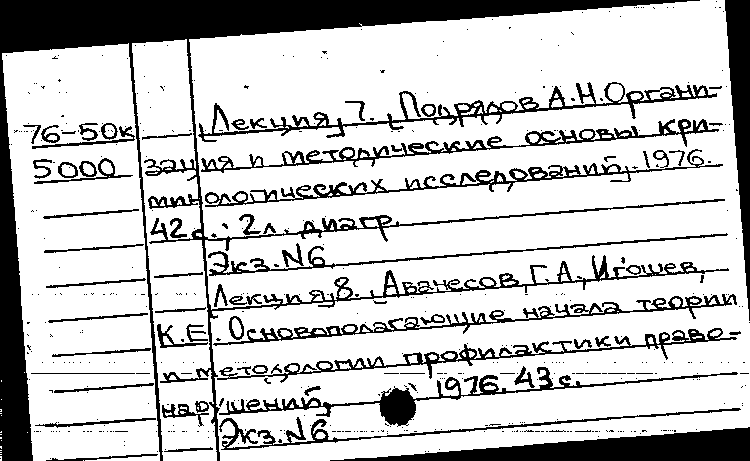 76-50к
5000
Лекция, 7. Подрядов А.Н. Органи-
зация и методические основы кри-
минологических исследований, 1976.
42с.; 2л. диагр.
Экз. N6.
Лекция, 8. Аванесов, Г.А., Игошев,
К.Е. Основополагающие начала теории
и методологии профилактики право-
нарушений, 1976. 43 с.
Экз. N6.